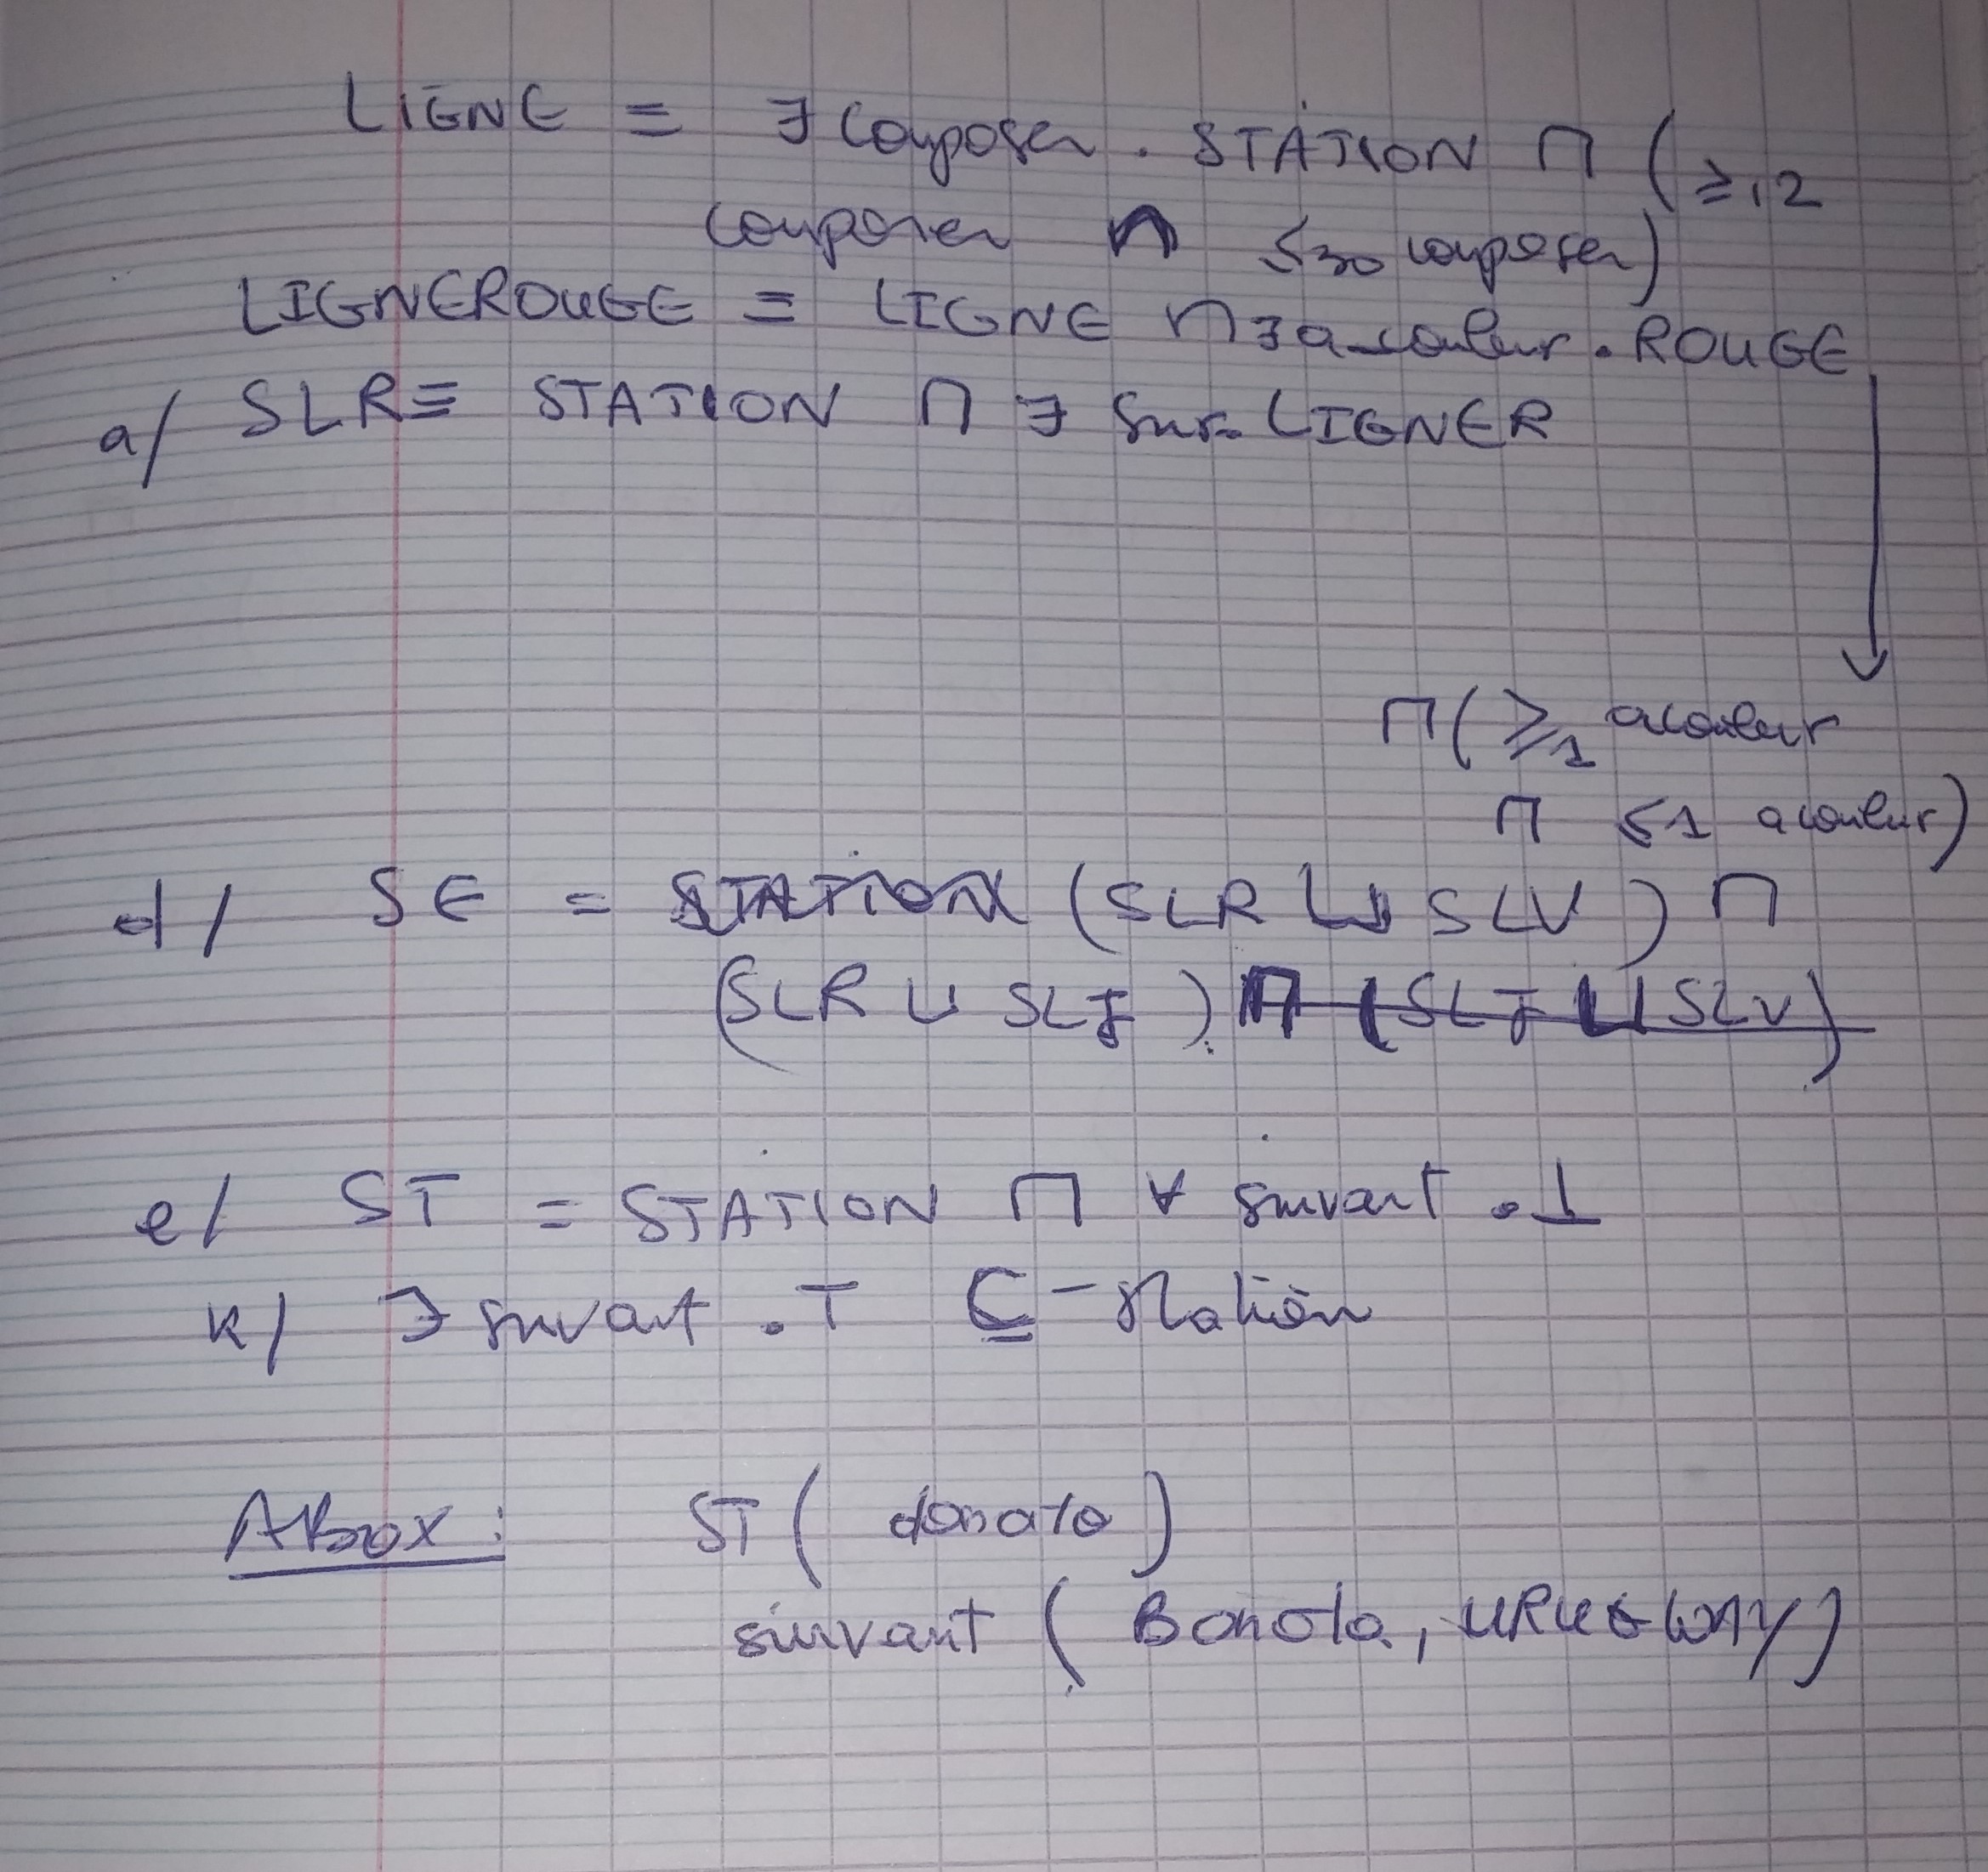 LIGNE = ∃ composer . STATION ⊓ ( ≥ 12
composer ⊓ ≤ 30 composer)
LIGNEROUGE = LIGNE ⊓ ∃ a_couleur . ROUGE
a/ SLR ≡ STATION ⊓ ∃ sur. LIGNER
⊓ ( ≥ 1 acouleur
⊓ ≤ 1 acouleur)
d/ SE = STATION (SLR ⊔ SLV ) ⊓
(SLR ⊔ SLJ ) ⊓ (SLJ ⊔ SLV)
e/ ST = STATION ⊓ ∀ suivant . ⊥
k/ ∃ suivant . T ⊑ station
ABox : ST ( donato )
suivant ( Bonola, URUGWAY)